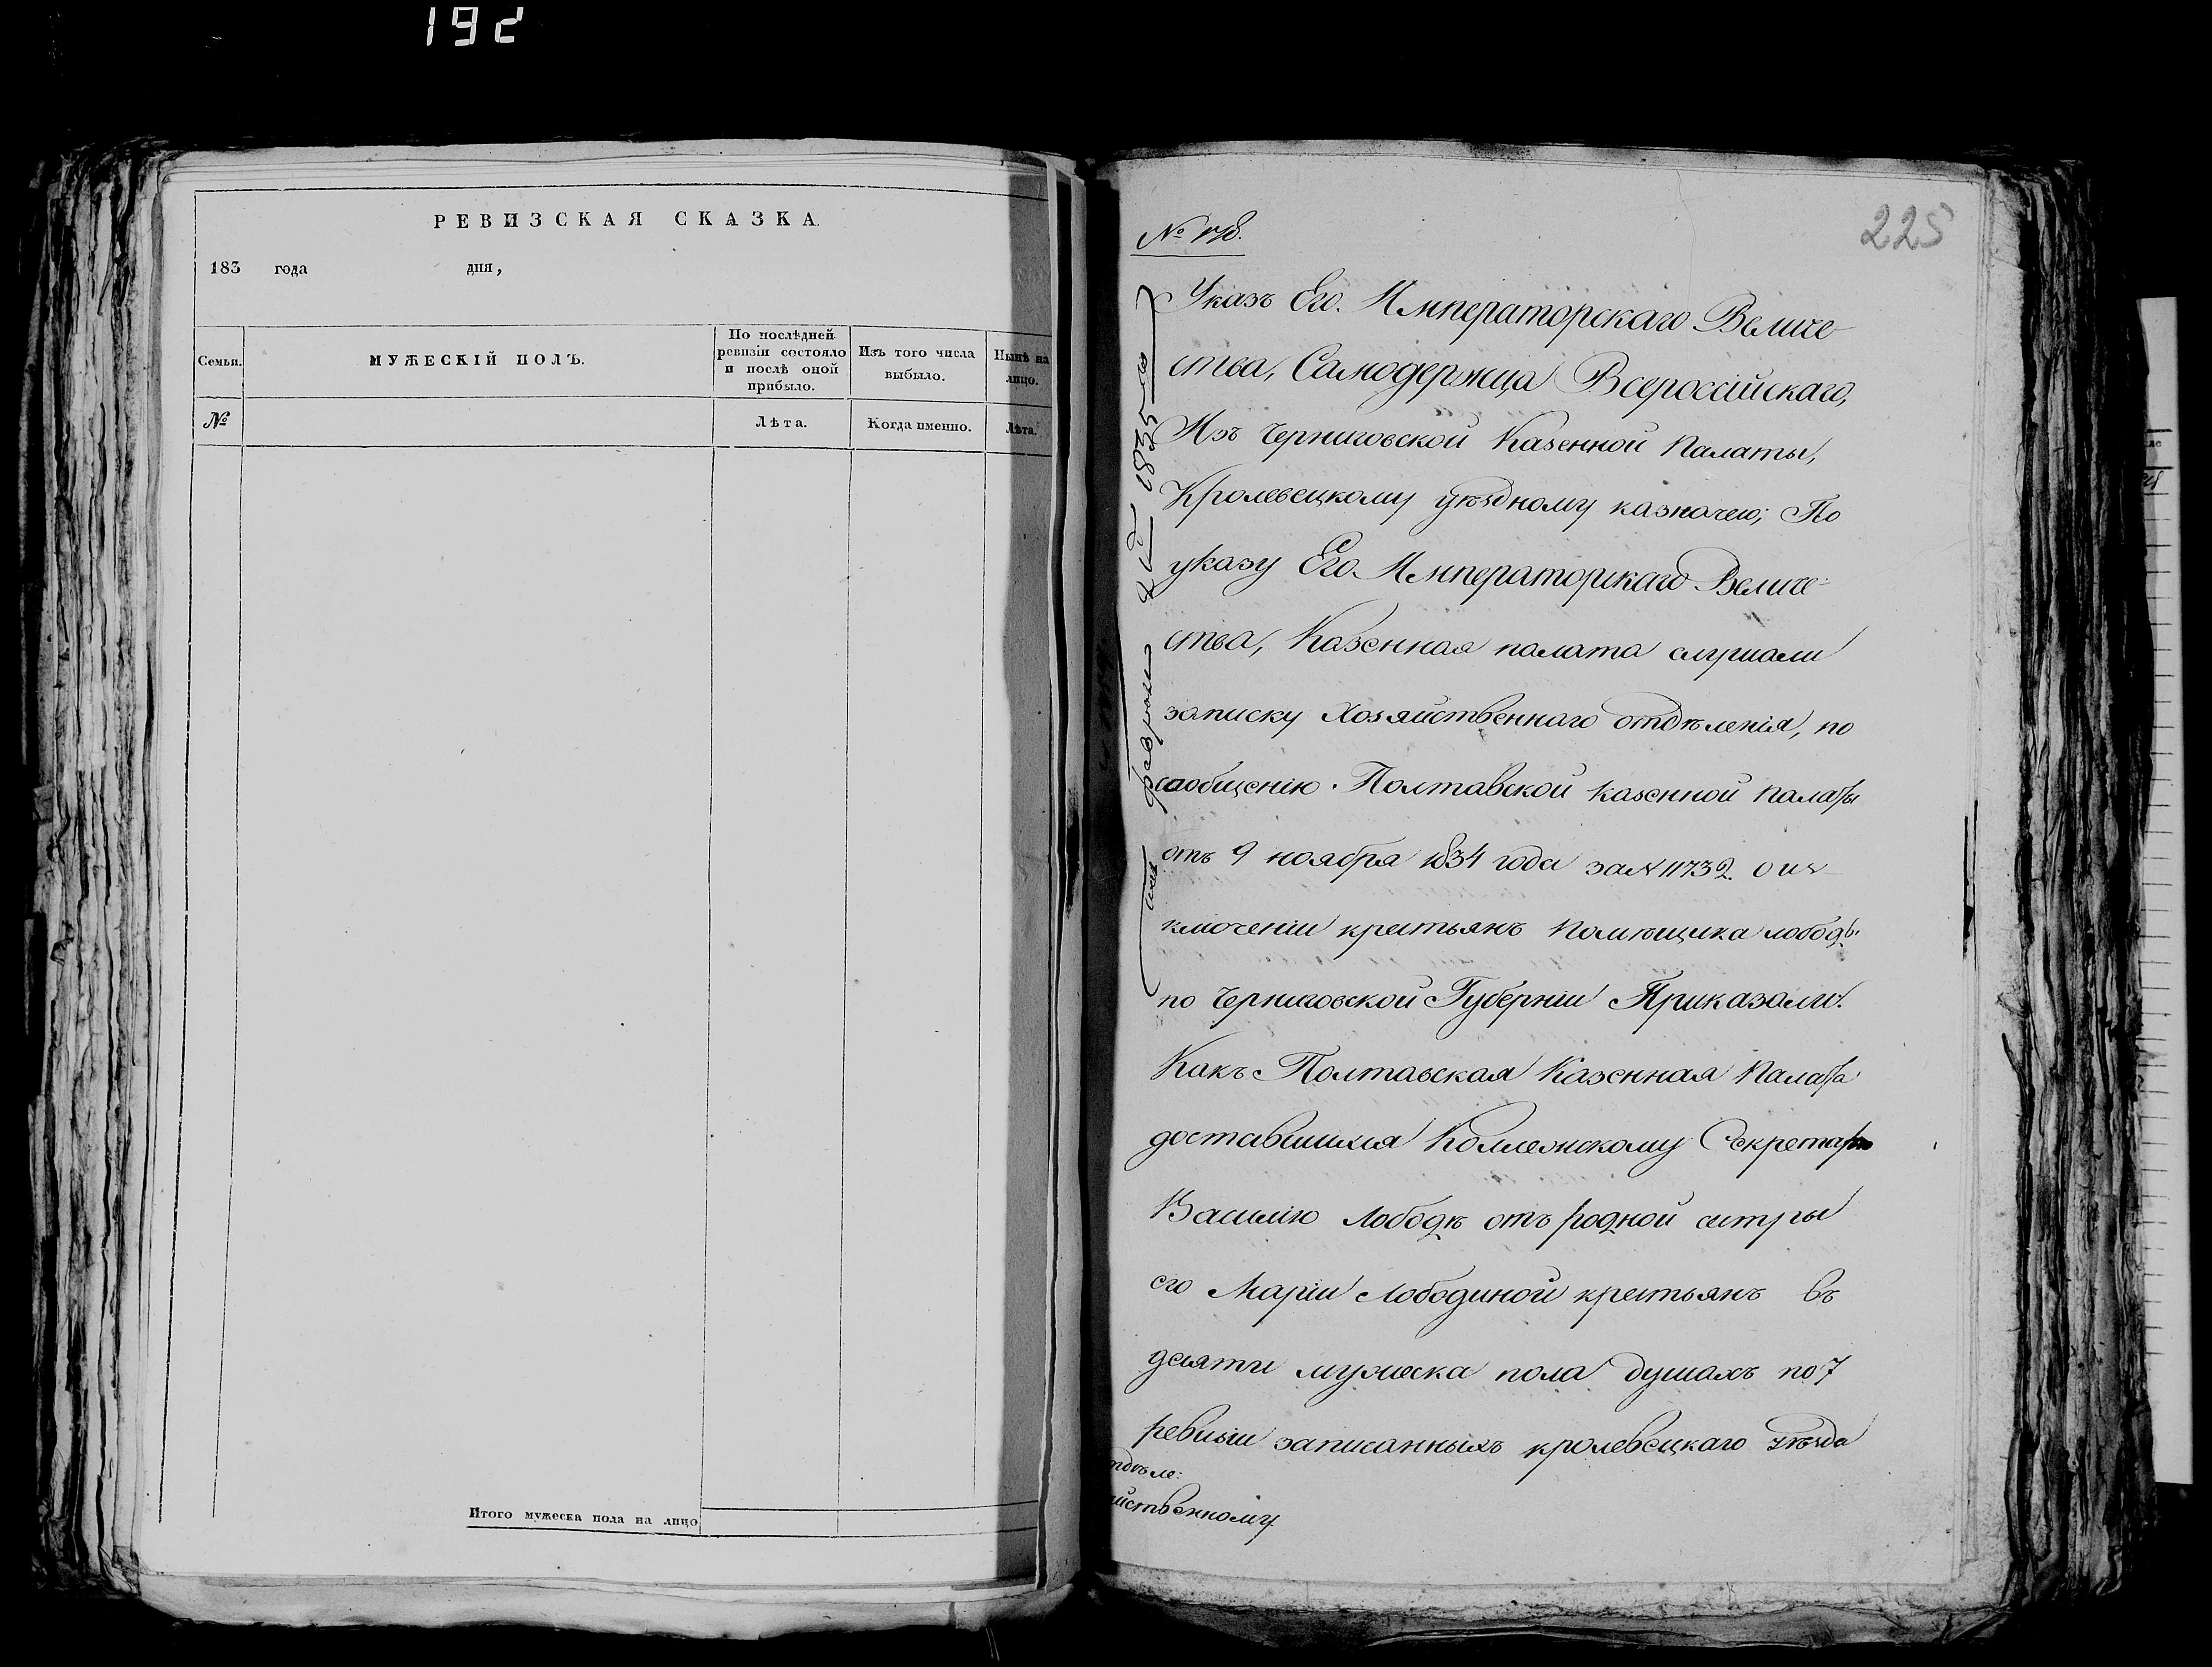 192
РЕВИЗСКАЯ СКАЗКА.
183 года дня,
Семьи.
МУЖЕСКІЙ ПОЛЪ.
По послѣдней
ревизіи состояло
и послѣ оной
прибыло.
Изъ того числа
выбыло.
Нынѣ на
лицо.
№
Лѣта.
Когда именно.
Лѣта.
Итого мужеска пола на лицо
225
№
Указъ Его Императорскаго Величе-
ства, Самодержца Всероссійскаго,
Изъ Черниговской Казенной Палаты,
Кролевецкому уѣздному казначею; По
указу Его Императорскаго Величе-
ства, Казенная палата слушали
записку Хозяйственнаго отдѣленія, по
сообщенію Полтавской казенной палаты
отъ 9 ноября 1834 года за № 11732. о ис
ключеніи крестьянъ помѣщика лободы
по Черниговской Губерніи Приказали:
Какъ Полтавская Казенная Палата
доставшихся Коллежскому Секретарю
Василію Лободѣ отъ родной сестры
его Маріи Лобединой крестьянъ въ
десяти мужеска пола душахъ по 7
ревизіи записанныхъ кролевецкаго уѣзда
февраля 1835-го
тдѣле:
йственному